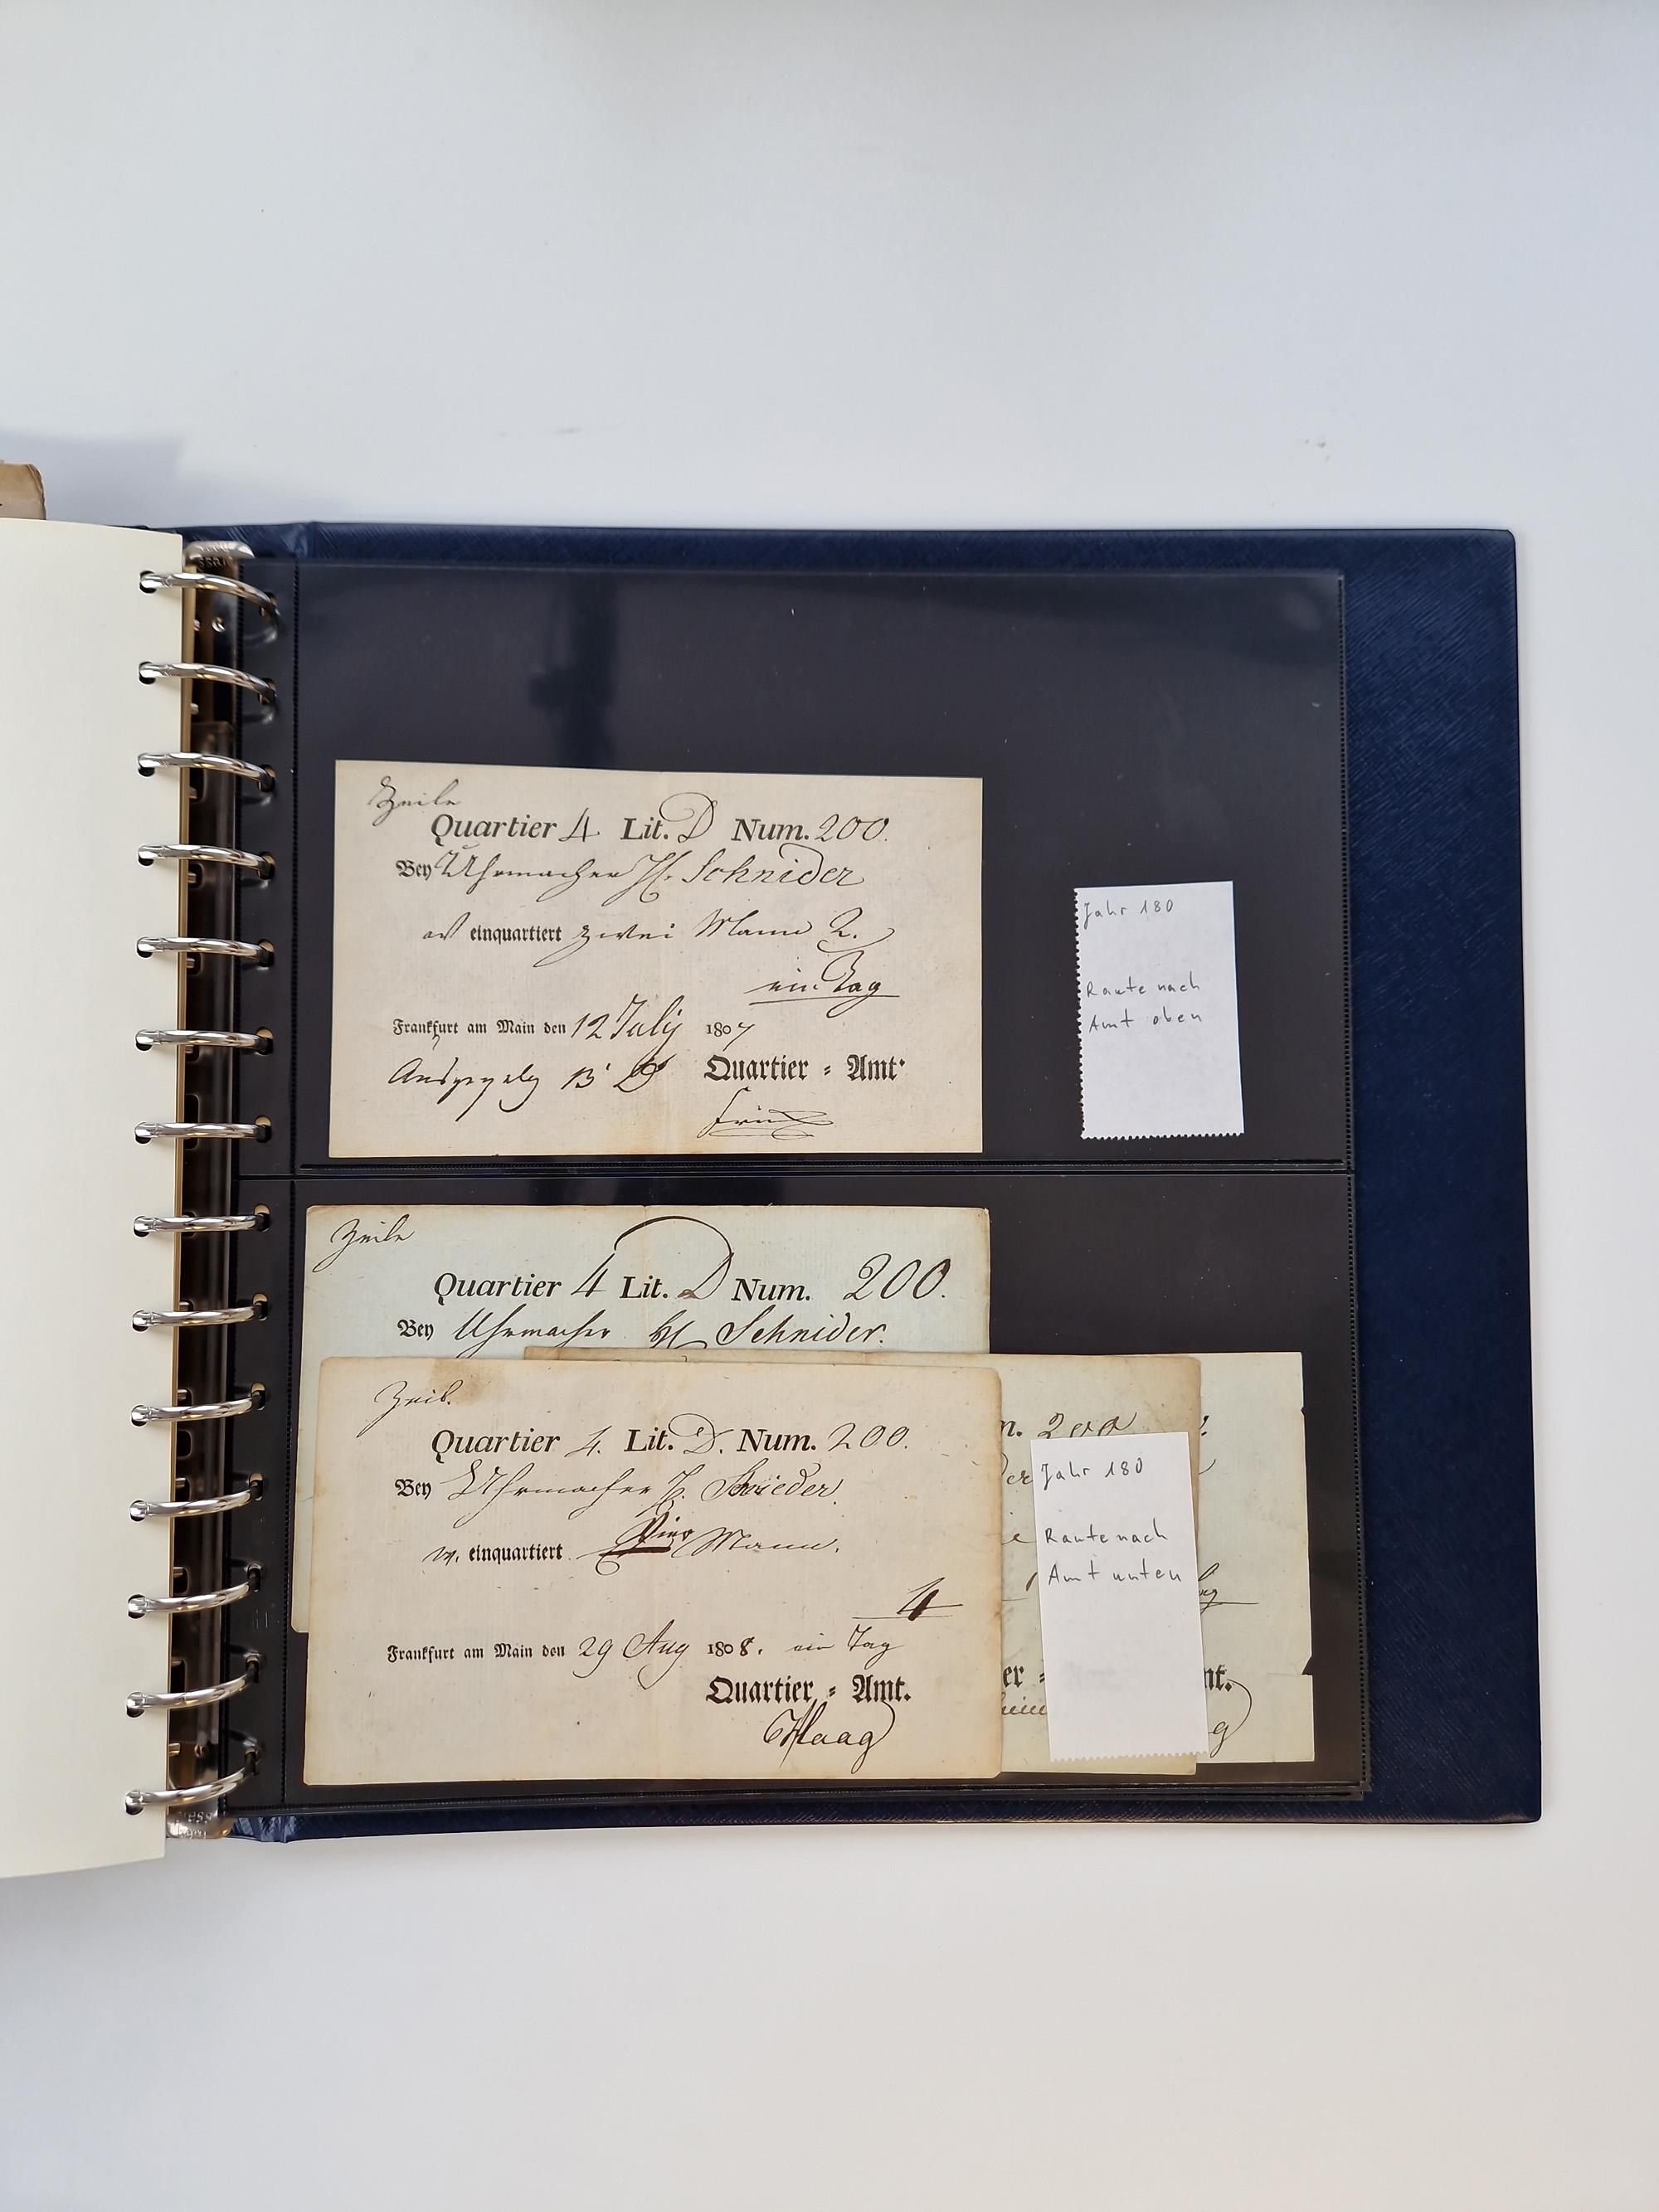 Zeile
Quartier 4 Lit. D Num. 200.
Bey Uhrmacher H. Schnider
einquartiert zwei Mann 2.
ein Tag
Frankfurt am Main den 12 July 1807
Quartier = Amt.
Jahr 180
Raute nach
Amt oben
Zeile
Quartier 4 Lit. D Num. 200.
Bey Uhrmacher H Schnider.
Zeil.
Quartier 4. Lit. D. Num. 200.
Bey Uhrmacher H.
einquartiert Vier Mann.
4
Frankfurt am Main den 29 Aug 1808. ein Tag
Quartier = Amt.
Haag
n. 200
er
er =
nt.
g
Jahr 180
Raute nach
Amt unten